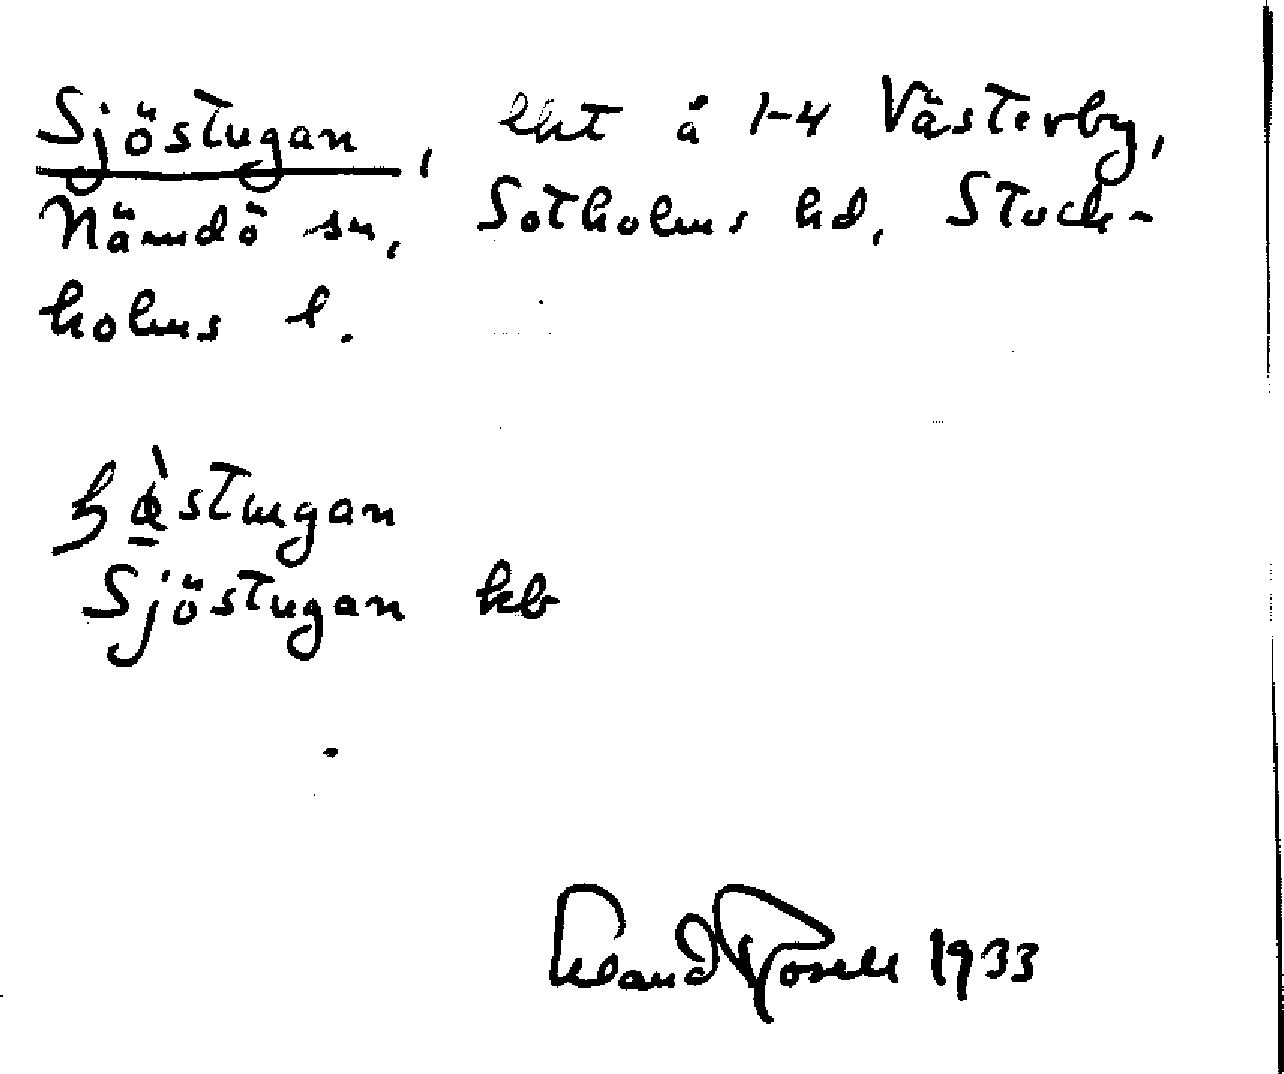 Sjöstugan, lht å 1-4 Västerby,
Nämdö sn, Sotholms hd, Stock-
holms l.
Sjöstugan kb
1933